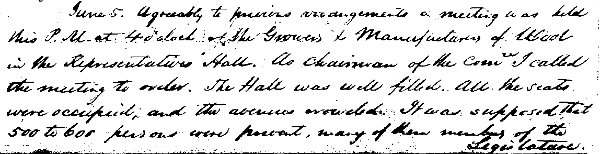 June 5. Agreeably to previous arrangements a meeting was held
this P.M. at 4 o'clock of the Growers & Manufactures of Wool
in the Representatives' Hall. As Chairman of the Com.ee I called
the meeting to order. The Hall was well filled. All the seats
were occupied, and the avenues crowded. It was supposed that
500 to 600 persons were present, many of them members of the
Legislature.